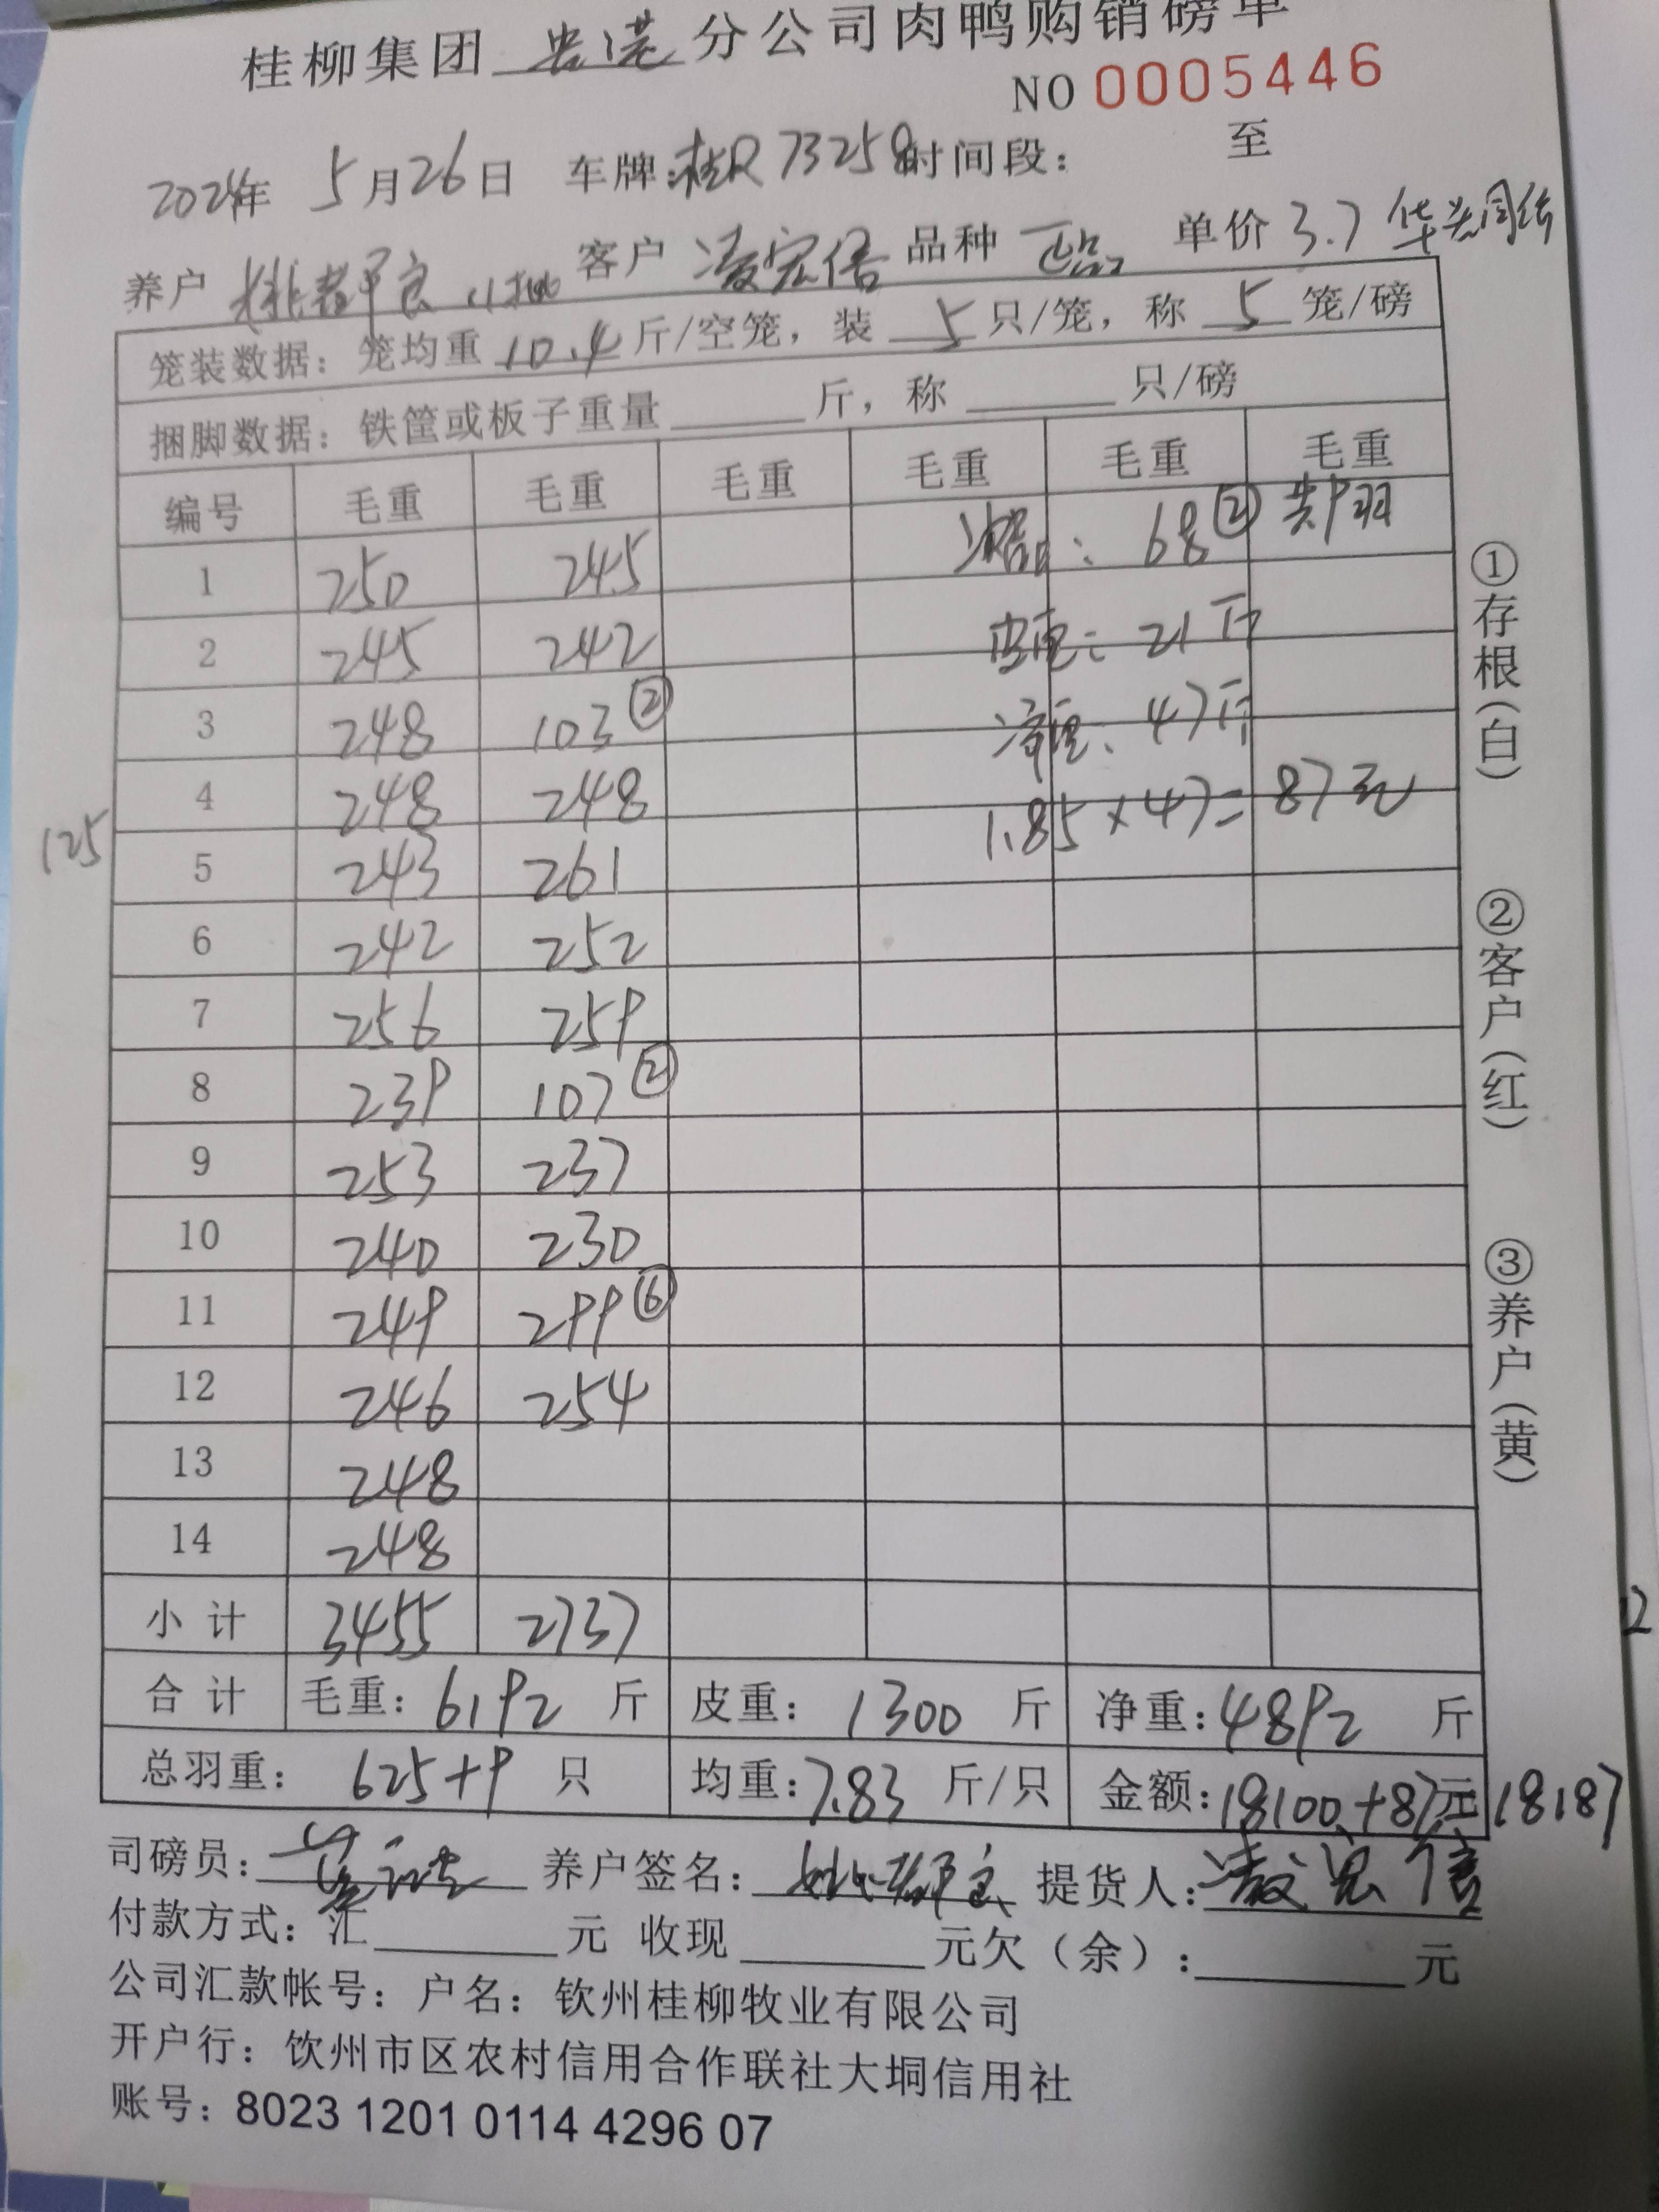 桂柳集团 贵港 分公司肉鸭购销磅单
NO 0005446
2024年 5月26日 车牌:桂R 73258 时间段: 至
养户 姚都良 客户 凌宏信 品种 正品 单价 3.7
笼装数据: 笼均重 10.4 斤/空笼, 装 5 只/笼, 称 5 笼/磅
捆脚数据: 铁筐或板子重量 斤, 称 只/磅
编号 毛重 毛重 毛重 毛重 毛重 毛重
次品: 68 ② 共9羽
1 250 245
皮重: 21斤
2 245 242
净重: 47斤
3 248 103 ②
1.85×47= 87元
4 248 248
125
5 243 261
6 242 252
7 256 259
8 239 107 ②
9 253 237
10 240 230
11 249 299 ⑥
12 246 254
13 248
14 248
小计 3455 2737
合计 毛重: 6192 斤 皮重: 1300 斤 净重: 4892 斤
总羽重: 625+9 只 均重: 7.83 斤/只 金额: 18100+87元 18187
司磅员: 养户签名: 姚都良 提货人: 凌宏信
付款方式: 汇 元 收现 元欠(余): 元
公司汇款帐号: 户名: 钦州桂柳牧业有限公司
开户行: 饮州市区农村信用合作联社大垌信用社
账号: 8023 1201 0114 4296 07
①存根(白)
②客户(红)
③养户(黄)